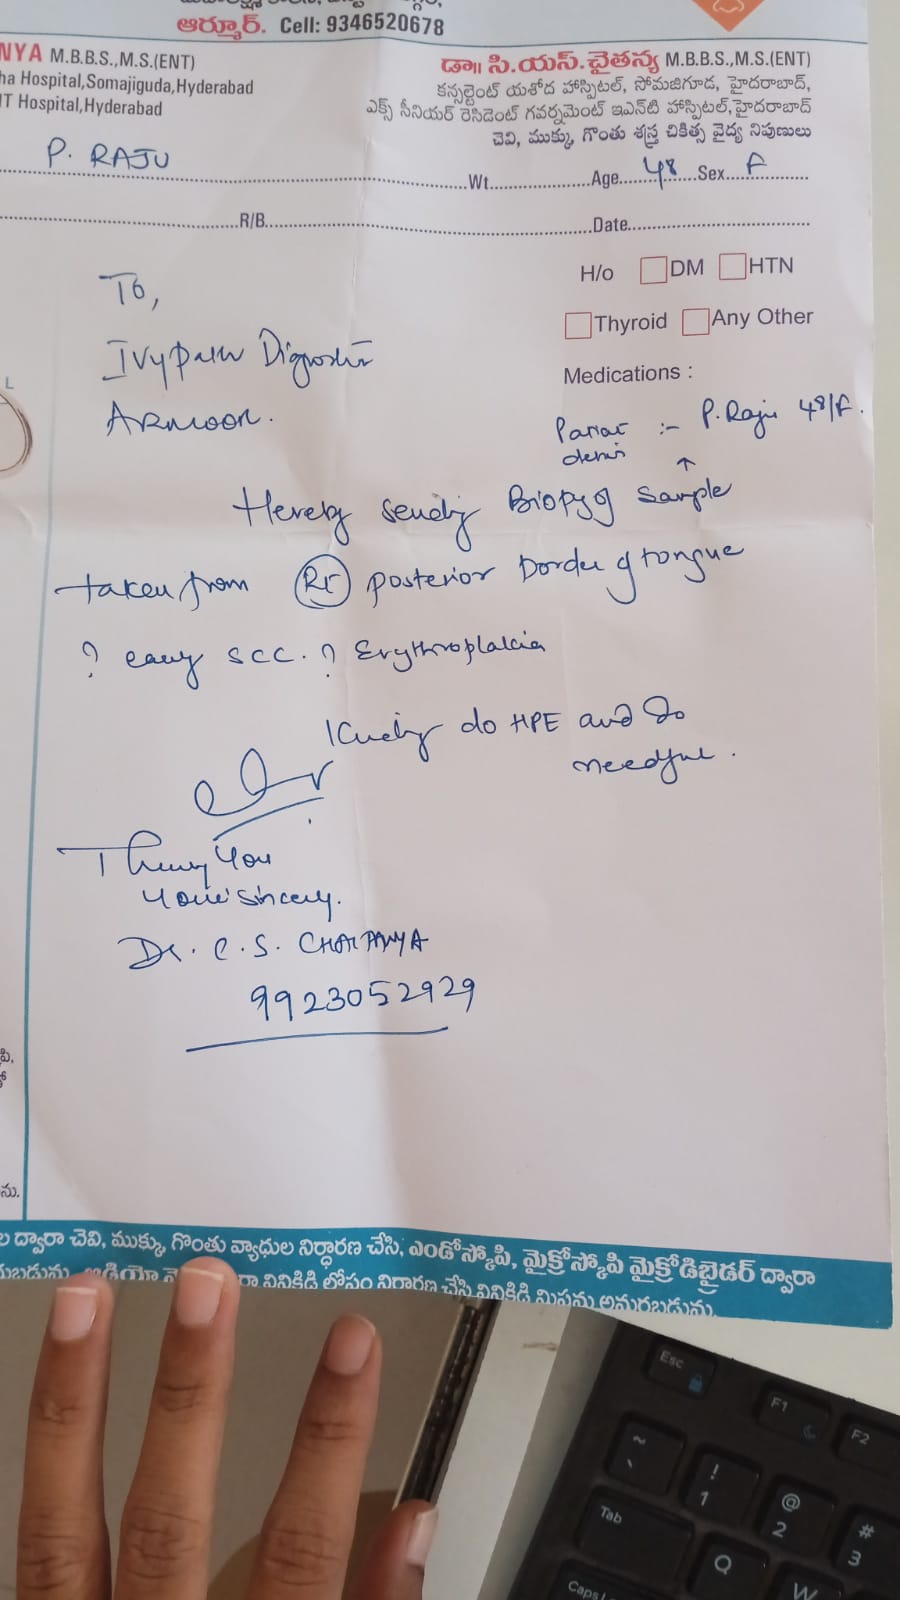 ఆర్మూర్. Cell: 9346520678
NYA M.B.B.S.,M.S.(ENT)
na Hospital,Somajiguda,Hyderabad
IT Hospital,Hyderabad
డా॥ సి.యస్.చైతన్య M.B.B.S.,M.S.(ENT)
కన్సల్టెంట్ యశోద హాస్పిటల్, సోమజిగూడ, హైదరాబాద్,
ఎక్స్ సీనియర్ రెసిడెంట్ గవర్నమెంట్ ఇఎన్‌టి హాస్పిటల్,హైదరాబాద్
చెవి, ముక్కు, గొంతు శస్త్ర చికిత్స వైద్య నిపుణులు
P. RAJU
Wt. Age 48 Sex F
R/B Date
H/o DM HTN
Thyroid Any Other
Medications :
To,
Ivypath
ARMOOR.
:- P. Raju 48/F.
↑
Hereby sending Biopsy of sample
taken from Rt posterior border of tongue
? early SCC. ? Erythroplakia
Kindly do HPE and do
needful.
Thank You
Your sincerly.
Dr. C. S. CHAITANYA
9923052929
L
పి,
ను.
ల ద్వారా చెవి, ముక్కు, గొంతు వ్యాధుల నిర్ధారణ చేసి, ఎండోస్కోపి, మైక్రోస్కోపి మైక్రోడిబ్రైడర్ ద్వారా
వినికిడి లోపం నిర్ధారణ చేసి వినికిడి మిషను అమర్చబడును.
Esc F1 F2
~ `
! 1
@ 2
# 3
Tab Q W
Caps